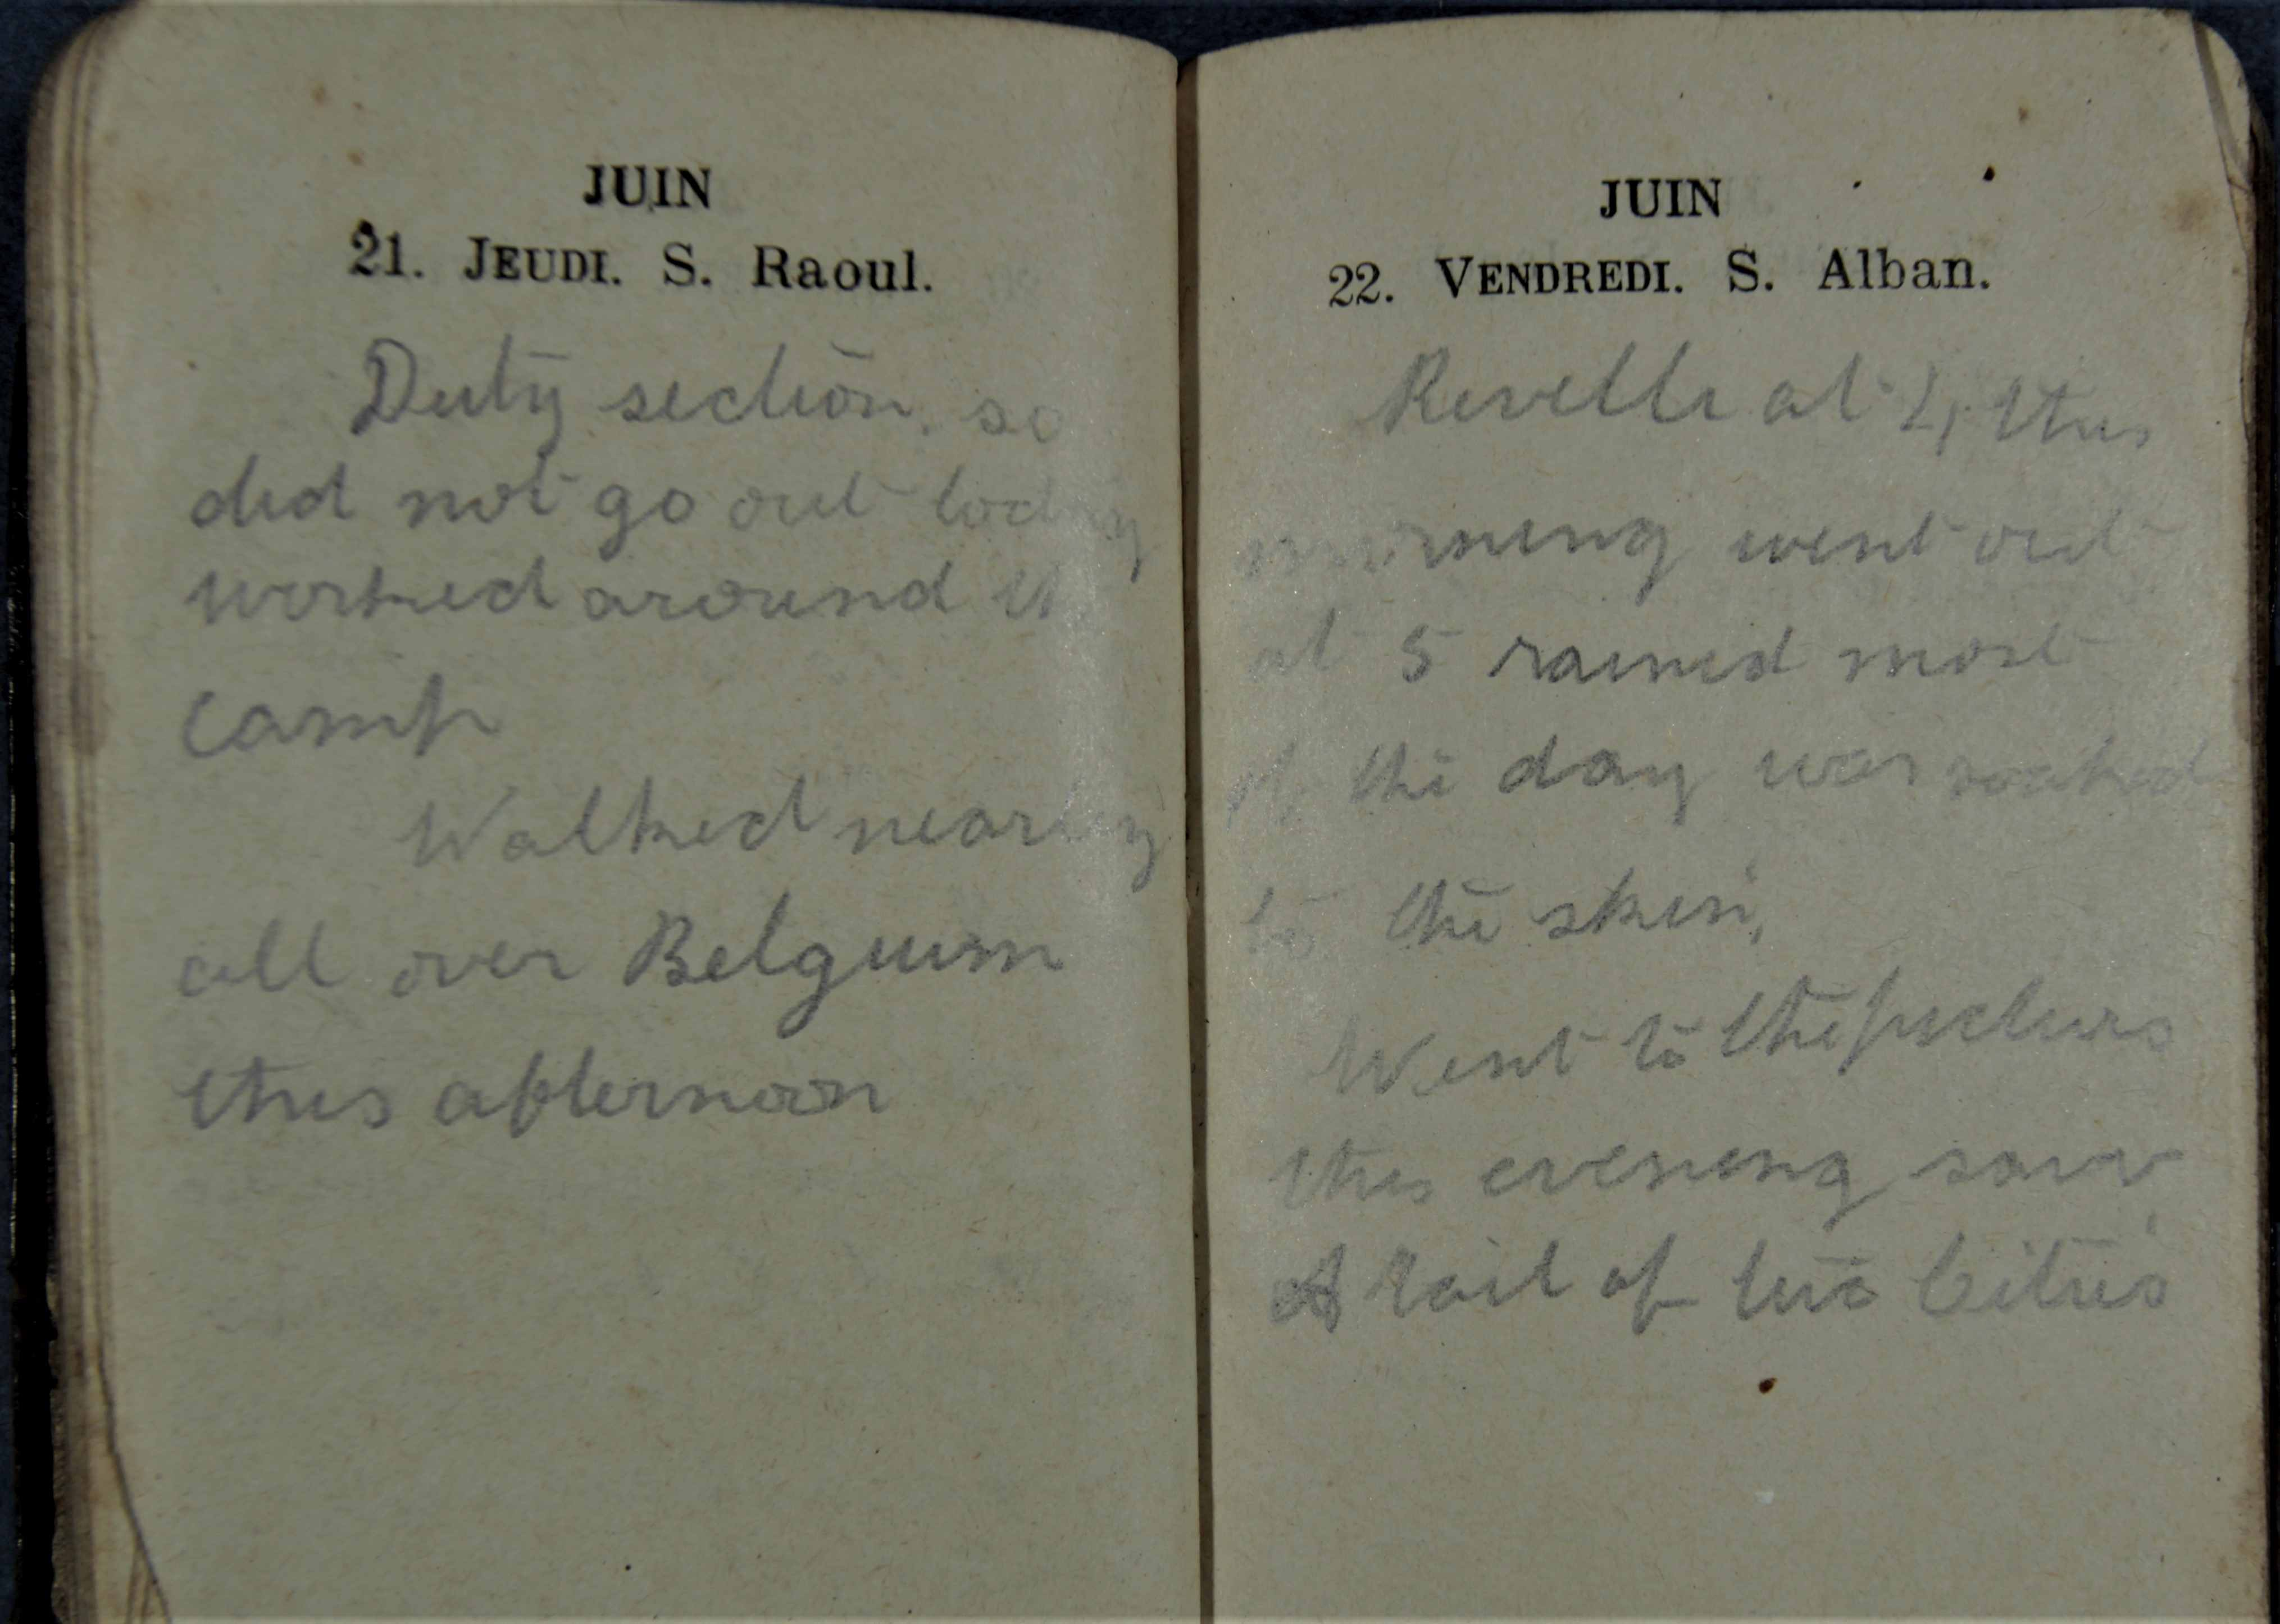 JUIN
21. JEUDI. S. Raoul.
Duty section, so
did not go out today
worked around the
camp
Walked nearly
all over Belguim
this afternoon
JUIN
22. VENDREDI. S. Alban.
Revelle at 4, this
morning went out
at 5 rained most
of the day was soaked
to the skin,
Went to the pictures
this evening saw
A tail of two Citie's